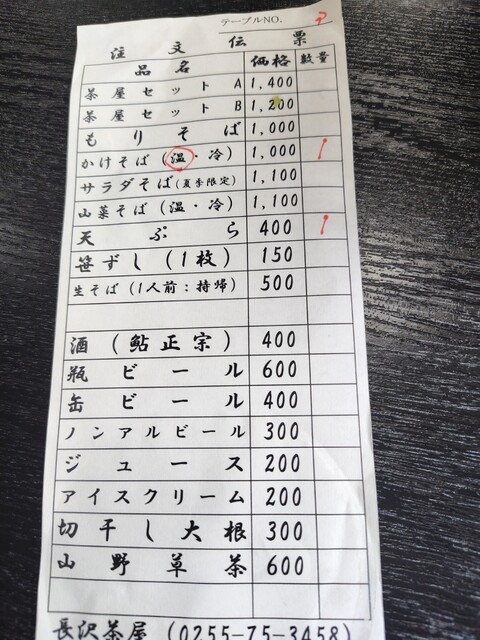 テーブルNO. 2
注文伝票
品名 価格 数量
茶屋セットA 1,400
茶屋セットB 1,200
もりそば 1,000
かけそば(温・冷) 1,000 1
サラダそば(夏季限定) 1,100
山菜そば(温・冷) 1,100
天ぷら 400 1
笹ずし(1枚) 150
生そば(1人前:持帰) 500
酒(鮎正宗) 400
瓶ビール 600
缶ビール 400
ノンアルビール 300
ジュース 200
アイスクリーム 200
切干し大根 300
山野草茶 600
長沢茶屋 (0255-75-3458)